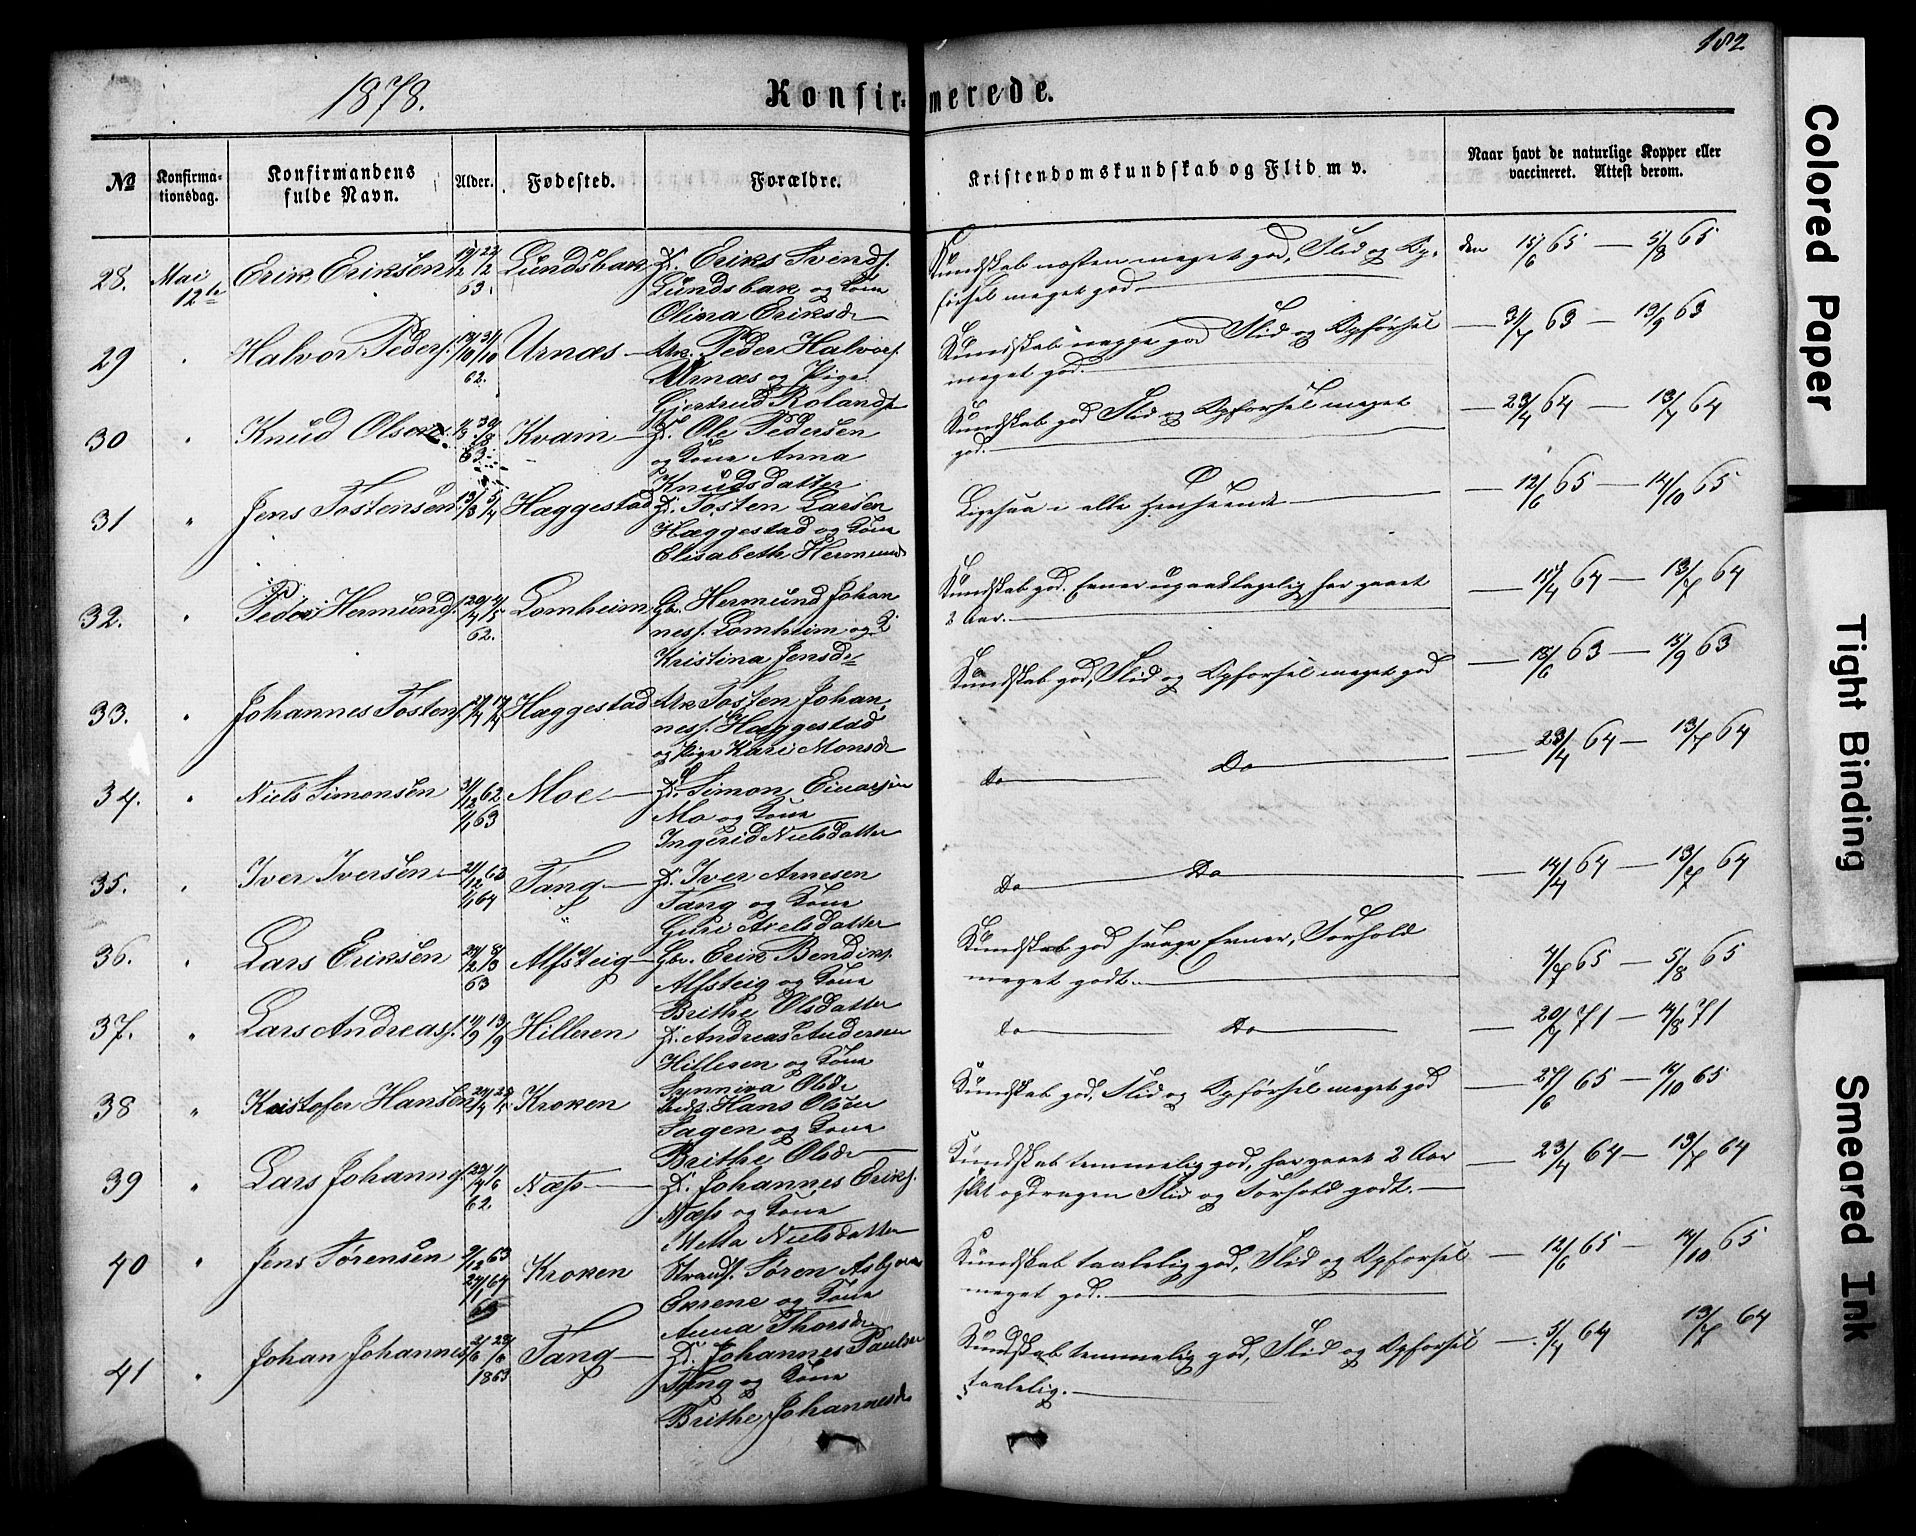 182
1878.
Konfir-merede.
No
Konfirma-
tionsdag.
Konfirmandens
fulde Navn.
Alder.
Fødested.
Forældre.
Kristendomskundskab og Flid m v.
Naar havt de naturlige Kopper eller
vaccineret. Attest derom.
28. Mai Erik Eriksen Lundsbak Eriks Svends.
12te 63. Lundsbak og Kone
Olina Eriksdr
Kundskab næsten meget god, Flid og Op-
førsel meget god.
den 15/6 65 — 5/8 65
29 " Halvor Peders. Urnæs Peder Halvors.
62. Urnæs og Pige
Gjertrud Rolandsdr
Kundskab god Flid og Opførsel
meget god.
3/7 63 — 13/9 63
30 " Knud Olsen Kvam Ole Pedersen
63 og Kone Anna
Knudsdatter
Kundskab god Flid og Opførsel meget
god.
23/4 64 — 13/7 64
31 " Jens Tostensen. 13/3 5/4 Haggestad Tosten Larsen
Haggestad og Kone
Elisabeth Hermunds
Ligesaa i alle Henseende
12/6 65 — 14/10 65
32. " Peder Hermunds. Lomheim Gbr. Hermund Johan
62. ness. Lomheim og K
Kristina Jensdr
Kundskab god. Evner upaaklagelig har gaaet
2 Aar.
15/4 64 — 13/7 64
33. " Johannes Tostens. Haggestad Tosten Johan-
ness. Haggestad
og Pige Kari Monsdr
Kundskab god, Flid og Opførsel meget god
18/6 63 — 13/9 63
34. " Niels Simonsen 31/12 62 Moe Simon Einarsen
1/1 63 Mo og Kone
Ingerid Nielsdatter
Do Do
23/4 64 — 13/7 64
35. " Iver Iversen 21/12 63 Tang Iver Arnesen
1/1 64 Tang og Kone
Guri Axelsdatter
Do Do
14/4 64 — 13/7 64
36. " Lars Eriksen Alfsteig Gbr. Erik Bendiks.
63 Alfsteig og Kone
Brithe Olsdatter
Kundskab god svage Evner, Forhold
meget godt.
4/7 65 — 5/8 65
37. " Lars Andreass. 11/9 13/9 Hilleren Andreas Andersen
Hilleren og Kone
Synneva Olsdr
Do Do
20/7 71 — 14/8 71
38 " Kristofer Hansen Kroken Hans Olsen
Sagen og Kone
Brithe Olsdr
Kundskab god, Flid og Opførsel meget god
27/6 65 — 14/10 65
39 " Lars Johanness. Næss Johannes Eriks.
62. Næss og Kone
Metta Nielsdatter
Kundskab temmelig god, har gaaet 2 Aar
Flid og Forhold godt.
23/4 64 — 13/7 64
40 " Jens Sørensen 9/12 63 Kroken Strands. Søren Asbjørns
27/1 64 Eikrene og Kone
Anna Thorsdr
Kundskab taalelig god, Flid og Opførsel
meget god.
12/6 65 — 14/10 65
41 " Johan Johannes Tang Johannes Paulsen
1863 Tang og Kone
Brithe Johannesdr
Kundskab temmelig god, Flid og Opførsel
taalelig.
5/4 64 13/7 64
Colored Paper
Tight Binding
Smeared Ink